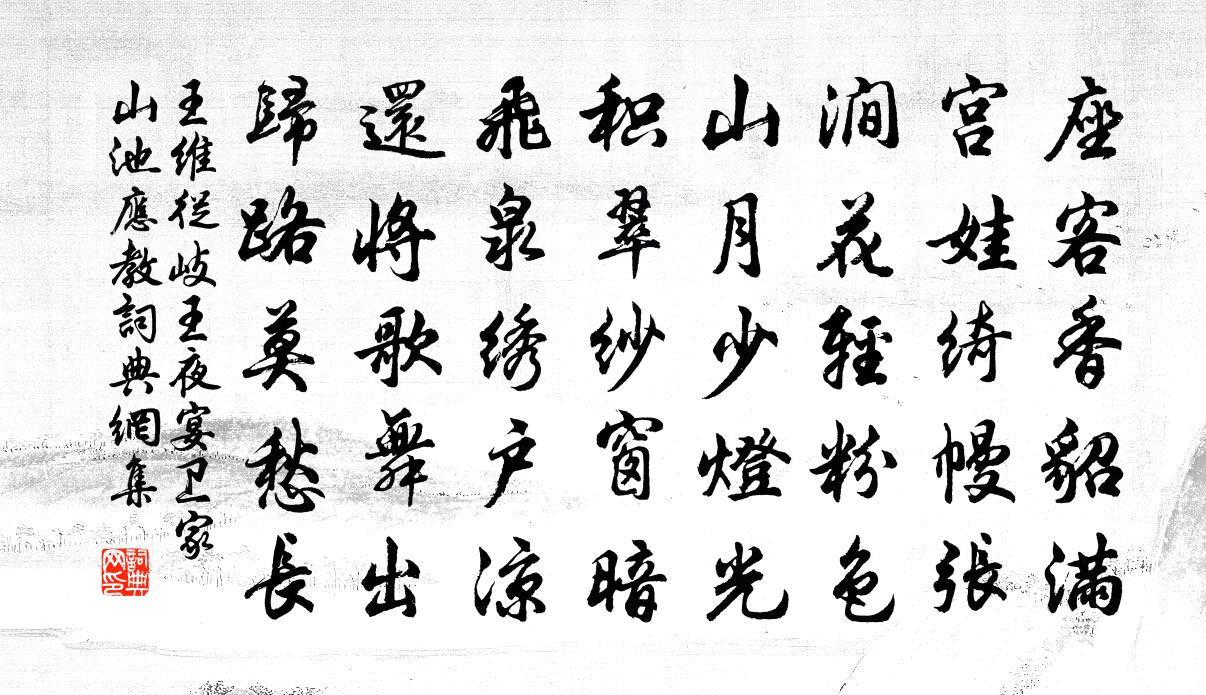 座客香貂满
宫娃绮幔張
澗花輕粉色
山月少燈光
积翠纱窗暗
飛泉绣户涼
還将歌舞出
歸路莫愁長
王維從岐王夜宴卫家
山池應教詞典網集
詞典
网印